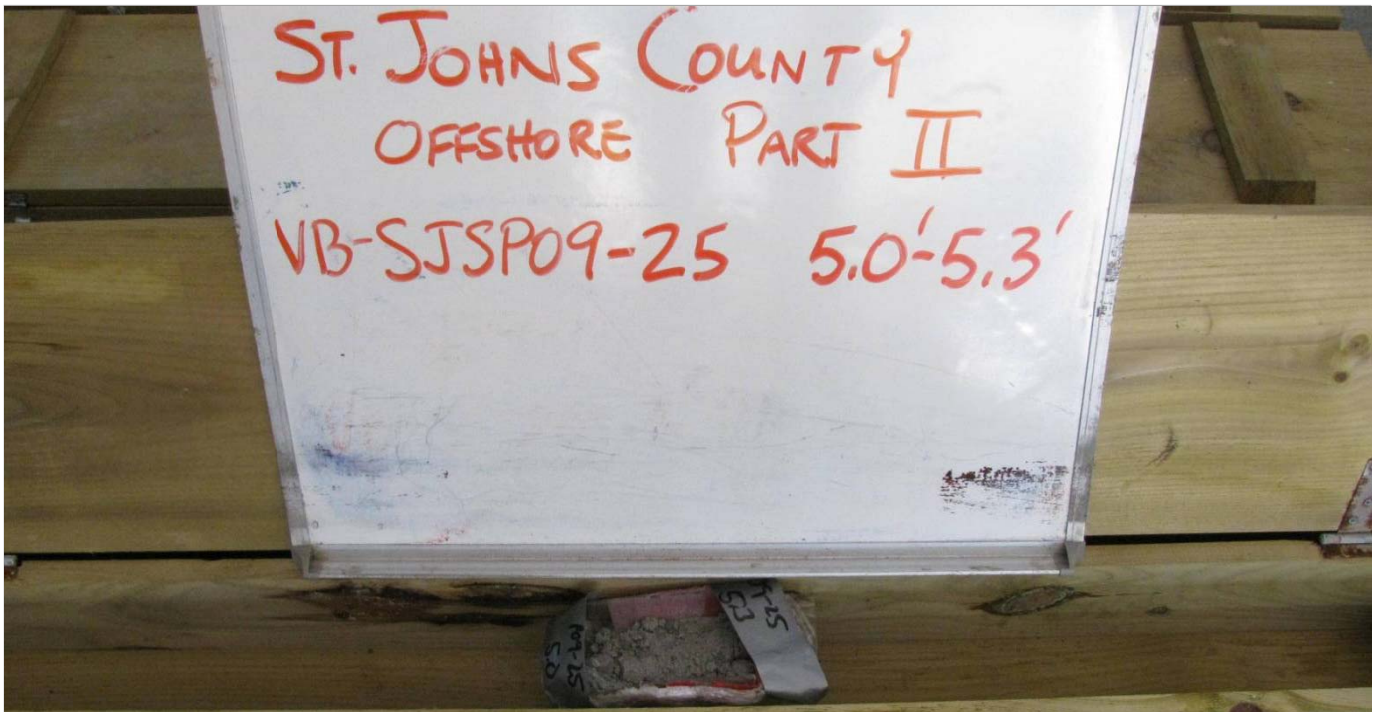 ST. JOHNS COUNTY
OFFSHORE PART II
VB-SJSP09-25 5.0'-5.3'
09-25
5.0
-25
5.3